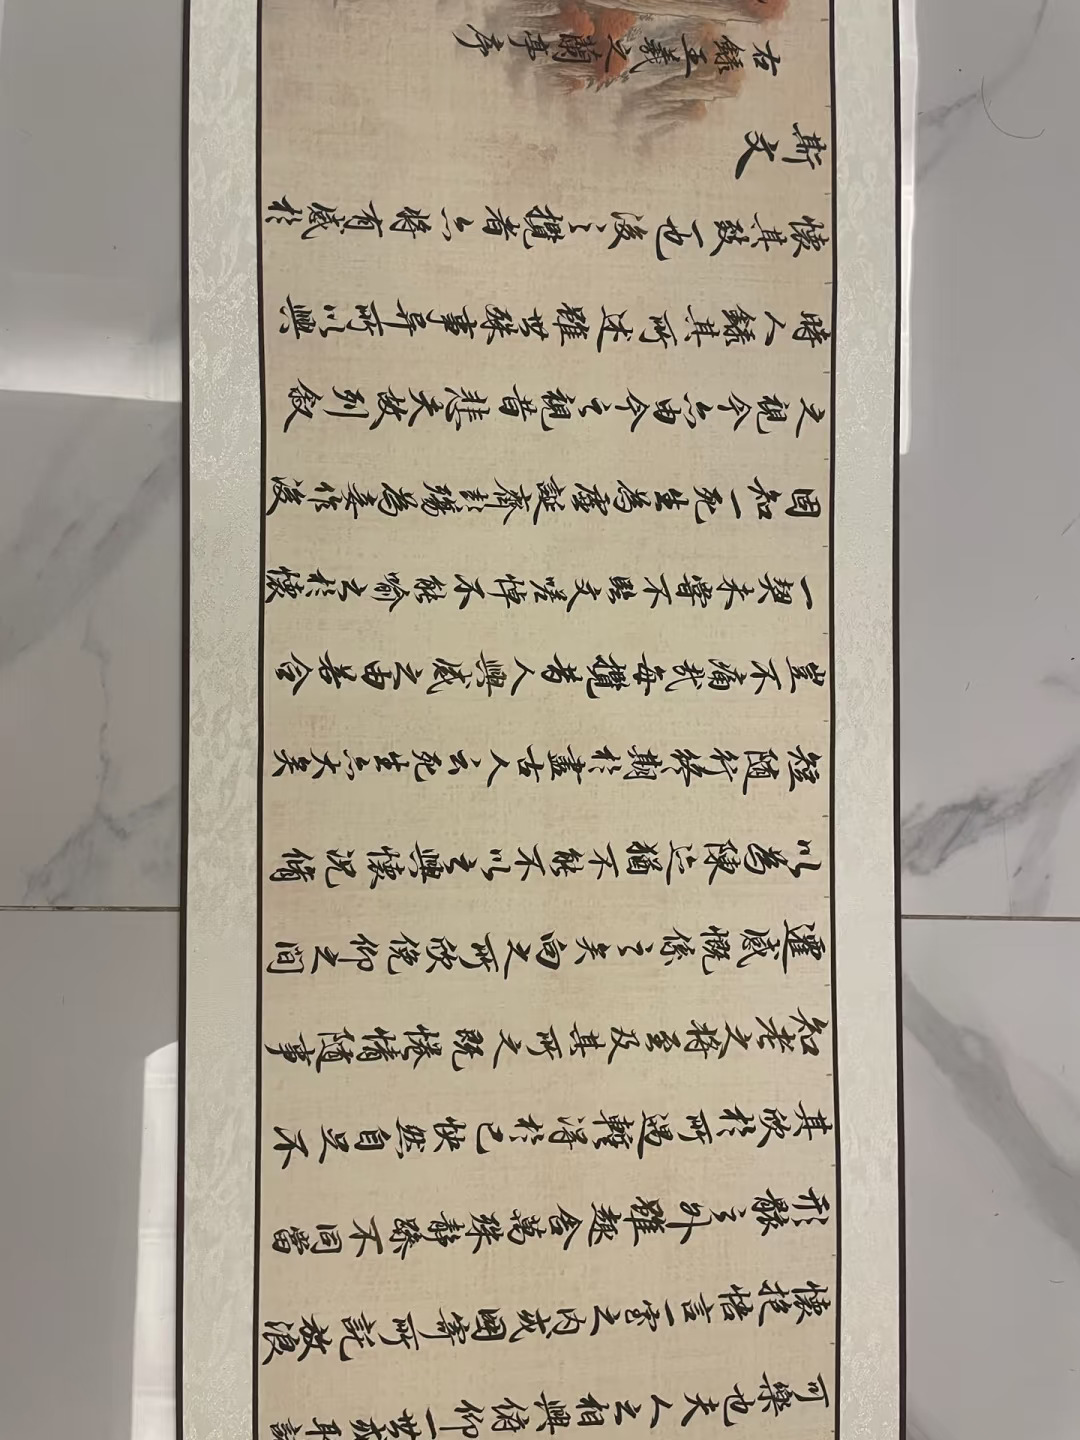 可樂也夫人之相與俯仰一世或取諸
懷抱悟言一室之內或因寄所託放浪
形骸之外雖趣舍萬殊靜躁不同當
其欣於所遇暫得於己快然自足不
知老之將至及其所之既惓情隨事
遷感慨係之矣向之所欣俛仰之間
以為陳迹猶不能不以之興懷況脩
短隨行終期於盡古人云死生亦大矣
豈不痛哉每攬昔人興感之由若合
一契未嘗不臨文嗟悼不能喻之於懷
固知一死生為虛誕齊彭殤為妄作後
之視今亦由今之視昔悲夫故列敘
時人錄其所述雖世殊事異所以興
懷其致一也後之攬者亦將有感於
斯文
右錄王羲之蘭亭序